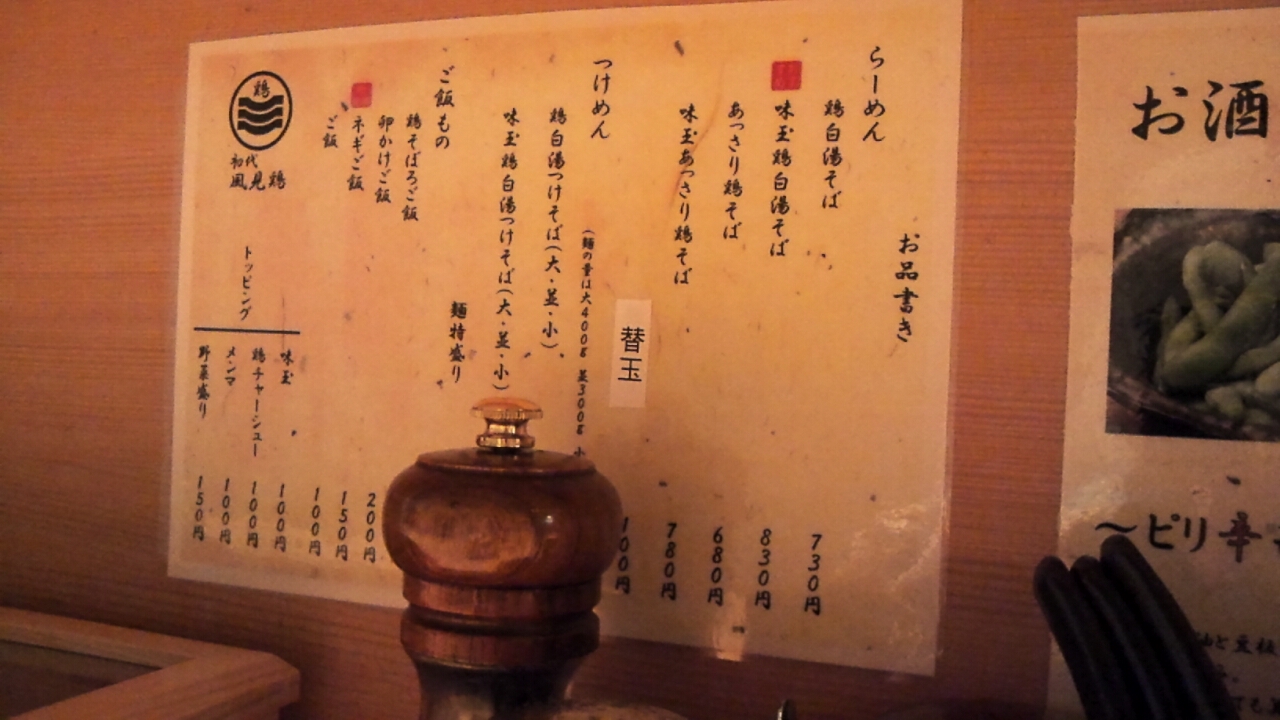 お品書き
らーめん
鶏白湯そば 730円
味玉鶏白湯そば 830円
あっさり鶏そば 680円
味玉あっさり鶏そば 780円
替玉 100円
つけめん
(麺の量は大400g 並300g 小
鶏白湯つけそば(大・並・小)
味玉鶏白湯つけそば(大・並・小)
麺特盛り
ご飯もの
鶏そぼろご飯
卵かけご飯 200円
ネギご飯 150円
ご飯 100円
トッピング
味玉 100円
鶏チャーシュー 100円
メンマ 100円
野菜盛り 150円
鶏
初代
風見鶏
お酒
〜ピリ辛